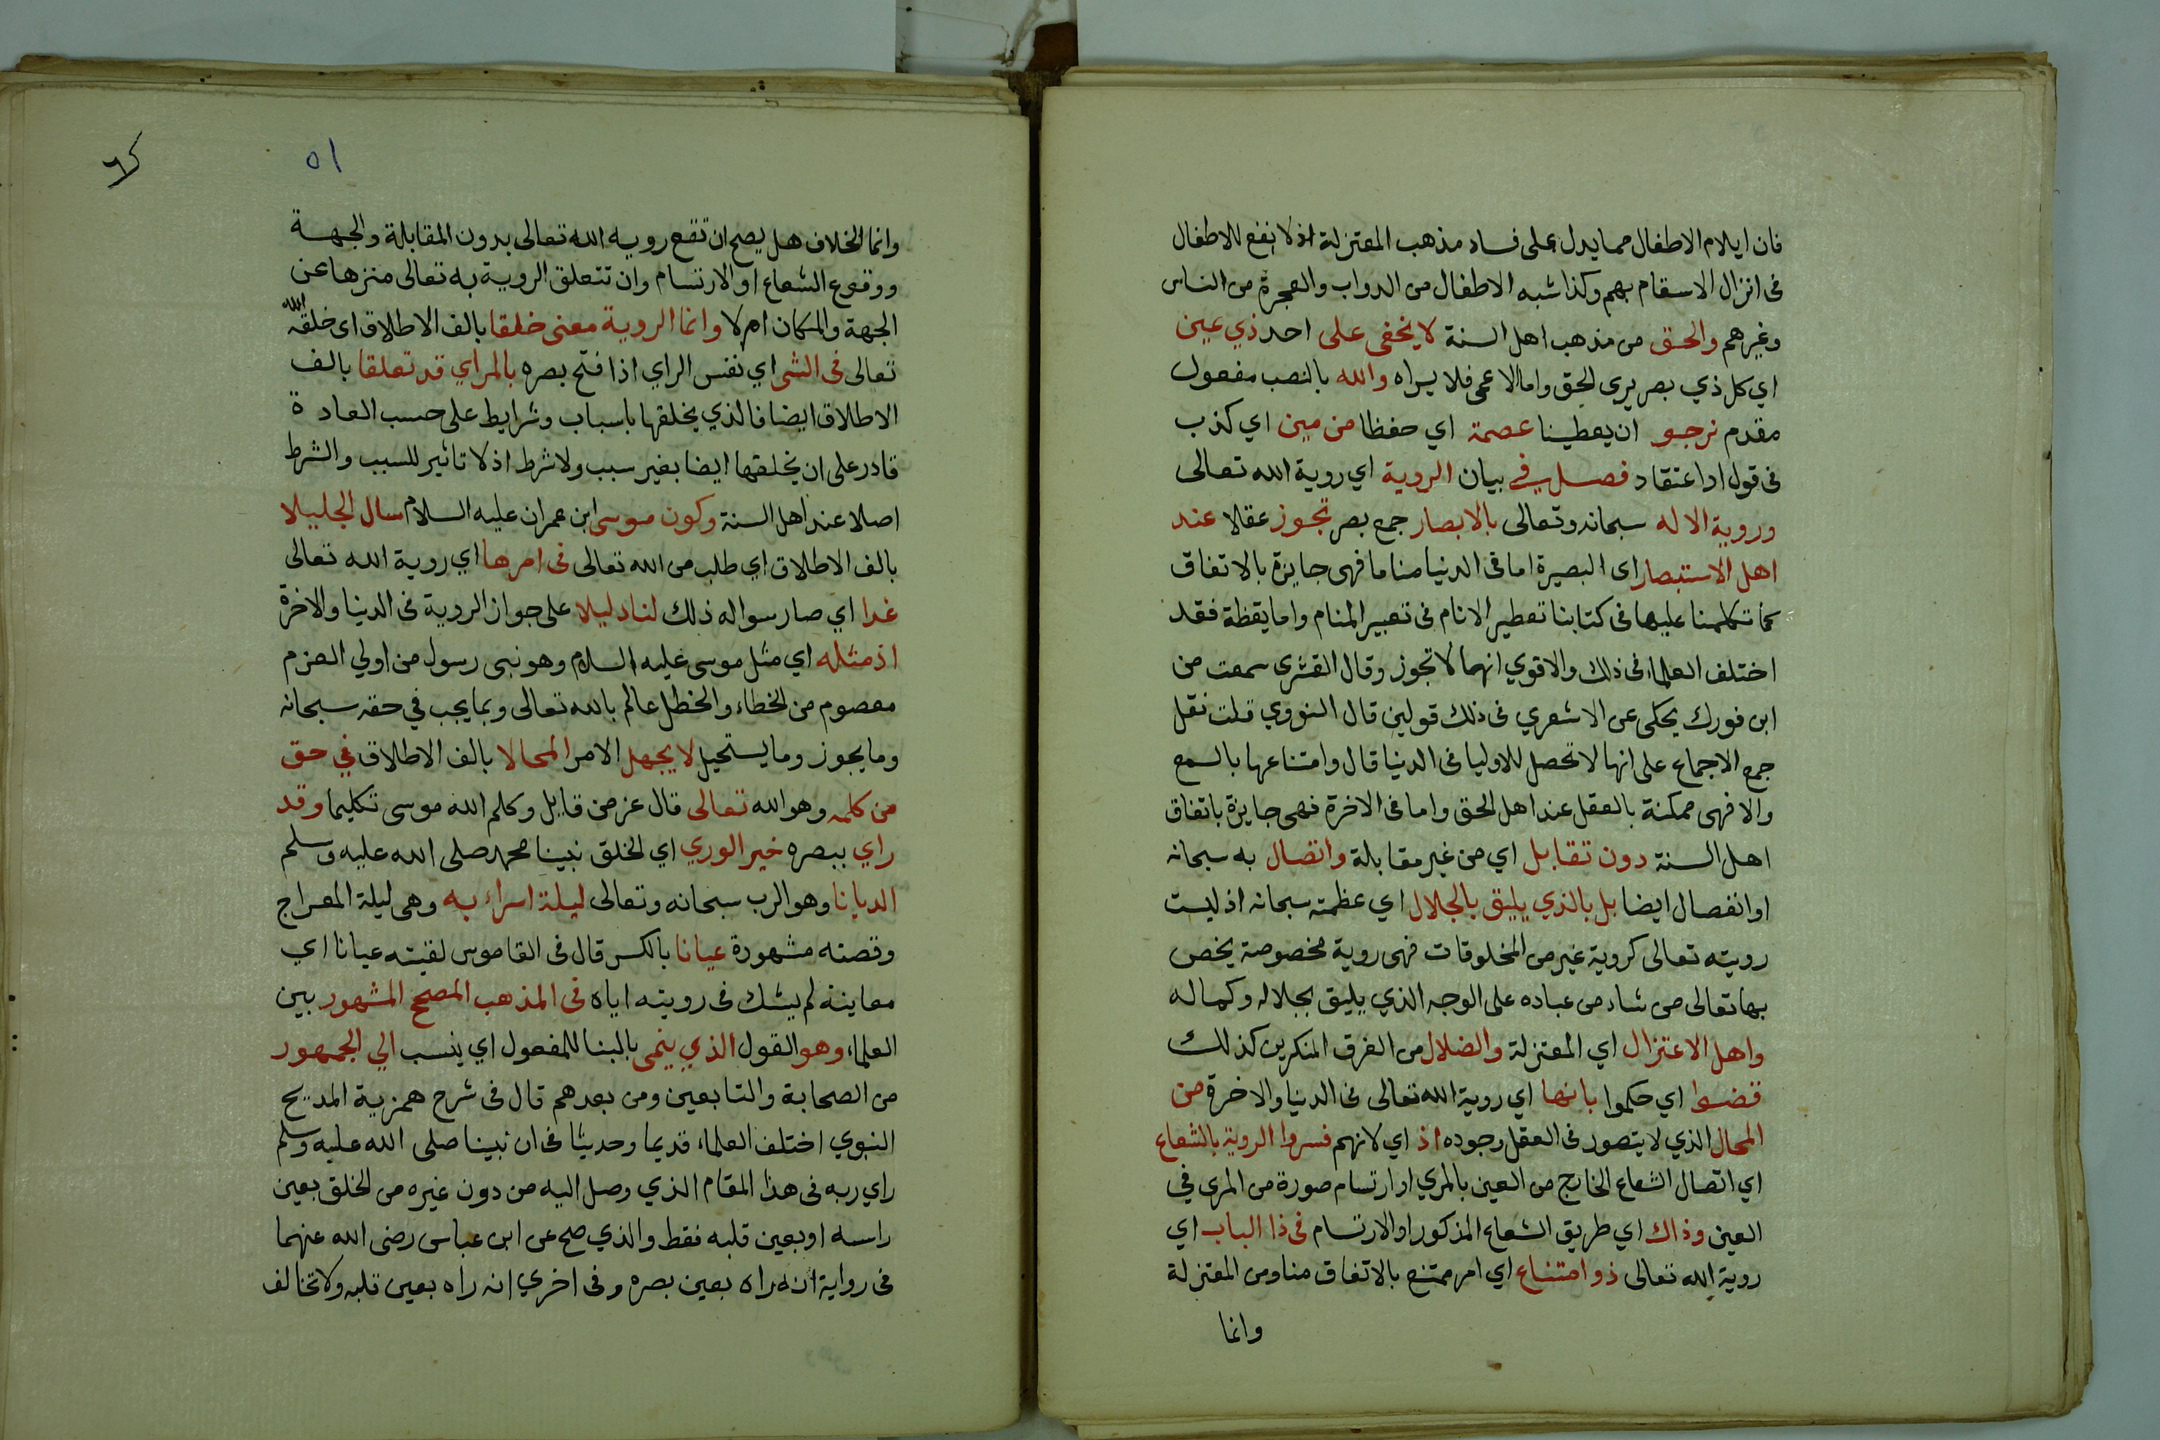 فان ايلام الاطفال مما يدل على فساد مذهب المعتزلة اذ لا نفع للاطفال
فى انزال الاسقام بهم وكذا شبه الاطفال من الدواب والعجزة من الناس
وغيرهم والحق من مذهب اهل السنة لا يخفى على احد ذي عين
اي كل ذي بصر يرى الحق واما الاعمى فلا يراه والله بالنصب مفعول
مقدم نرجو ان يعطينا عصمة اي حفظا من مين اي كذب
فى قول او اعتقاد فصل في بيان الروية اي روية الله تعالى
وروية الاله سبحانه وتعالى بالابصار جمع بصر تجوز عقلا عند
اهل الاستبصار اى البصيرة اما فى الدنيا مناما فهى جايزة بالاتفاق
كما تكلمنا عليها فى كتابنا تعطير الانام فى تعبير المنام واما يقظة فقد
اختلف العلماء فى ذلك والاقوي انها لا تجوز وقال القشرى سمعت من
ابن فورك يحكى عن الاشعري فى ذلك قولين قال النووي قلت نقل
جمع الاجماع على انها لا تحصل للاوليا فى الدنيا قال وامتناعها بالسمع
والا فهى ممكنة بالعقل عند اهل الحق واما فى الاخرة فهى جايزة باتفاق
اهل السنة دون تقابل اي من غير مقابلة واتصال به سبحانه
او انفصال ايضا بل بالذي يليق بالجلال اي عظمته سبحانه اذ ليست
رويته تعالى كروية غير من المخلوقات فهى روية مخصوصة يخص
بها تعالى من شاء من عباده على الوجه الذي يليق بجلاله وكماله
واهل الاعتزال اي المعتزلة والضلال من الفرق المنكرين كذلك
قضوا اي حكموا بانها اي روية الله تعالى فى الدنيا والاخرة من
المحال الذي لا يتصور فى العقل وجوده اذ اي لانهم فسروا الروية بالشعاع
اي اتصال الشعاع الخارج من العين بالمري او ارتسام صورة من المرى في
العين وذاك اي طريق الشعاع المذكور او الارتسام فى ذا الباب اي
روية الله تعالى ذو امتناع اي امر ممتنع بالاتفاق منا ومن المعتزلة
وانما
٥١
وانما الخلاف هل يصح ان تقع رويه الله تعالى بدون المقابلة والجهة
ووقوع الشعاع او الارتسام وان تتعلق الروية به تعالى منزها عن
الجهة والمكان ام لا وانما الروية معنى خلقا بالف الاطلاق اى خلقه الله
تعالى فى الشى اي نفس الراي اذا فتح بصره بالمراي قد تعلقا بالف
الاطلاق ايضا فالذي يخلقها باسباب وشرايط على حسب العادة
قادر على ان يخلقها ايضا بغير سبب ولا شرط اذ لا تاثير للسبب والشرط
اصلا عند اهل السنة وكون موسى ابن عمران عليه السلام سال الجليلا
بالف الاطلاق اي طلب من الله تعالى فى امرها اي روية الله تعالى
غدا اي صار سواله ذلك لنا دليلا على جواز الروية فى الدنيا والاخرة
اذ مثله اي مثل موسى عليه السلام وهو نبى رسول من اولي العزم
معصوم من الخطاء والخطل عالم بالله تعالى وبما يجب في حقه سبحانه
وما يجوز وما يستحيل لا يجهل الامر المحالا بالف الاطلاق في حق
من كلمه وهو الله تعالى قال عز من قايل وكلم الله موسى تكليما وقد
راي ببصره خير الوري اي الخلق نبينا محمد صلى الله عليه وسلم
الديانا وهو الرب سبحانه وتعالى ليلة اسراء به وهى ليلة المعراج
وقصته مشهورة عيانا بالكسر قال فى القاموس لقيته عيانا اي
معاينة لم يشك فى رويته اياه فى المذهب المصحح المشهور بين
العلماء وهو القول الذي ينمى بالبنا للمفعول اي ينسب الي الجمهور
من الصحابة والتابعين ومن بعدهم قال فى شرح همزية المديح
النبوي اختلف العلماء قديما وحديثا فى ان نبينا صلى الله عليه وسلم
راي ربه فى هذا المقام الذي وصل اليه من دون غيره من الخلق بعين
راسه او بعين قلبه فقط والذي صح عن ابن عباس رضى الله عنهما
فى رواية انه راه بعين بصره وفى اخري انه راه بعين قلبه ولا تخالف